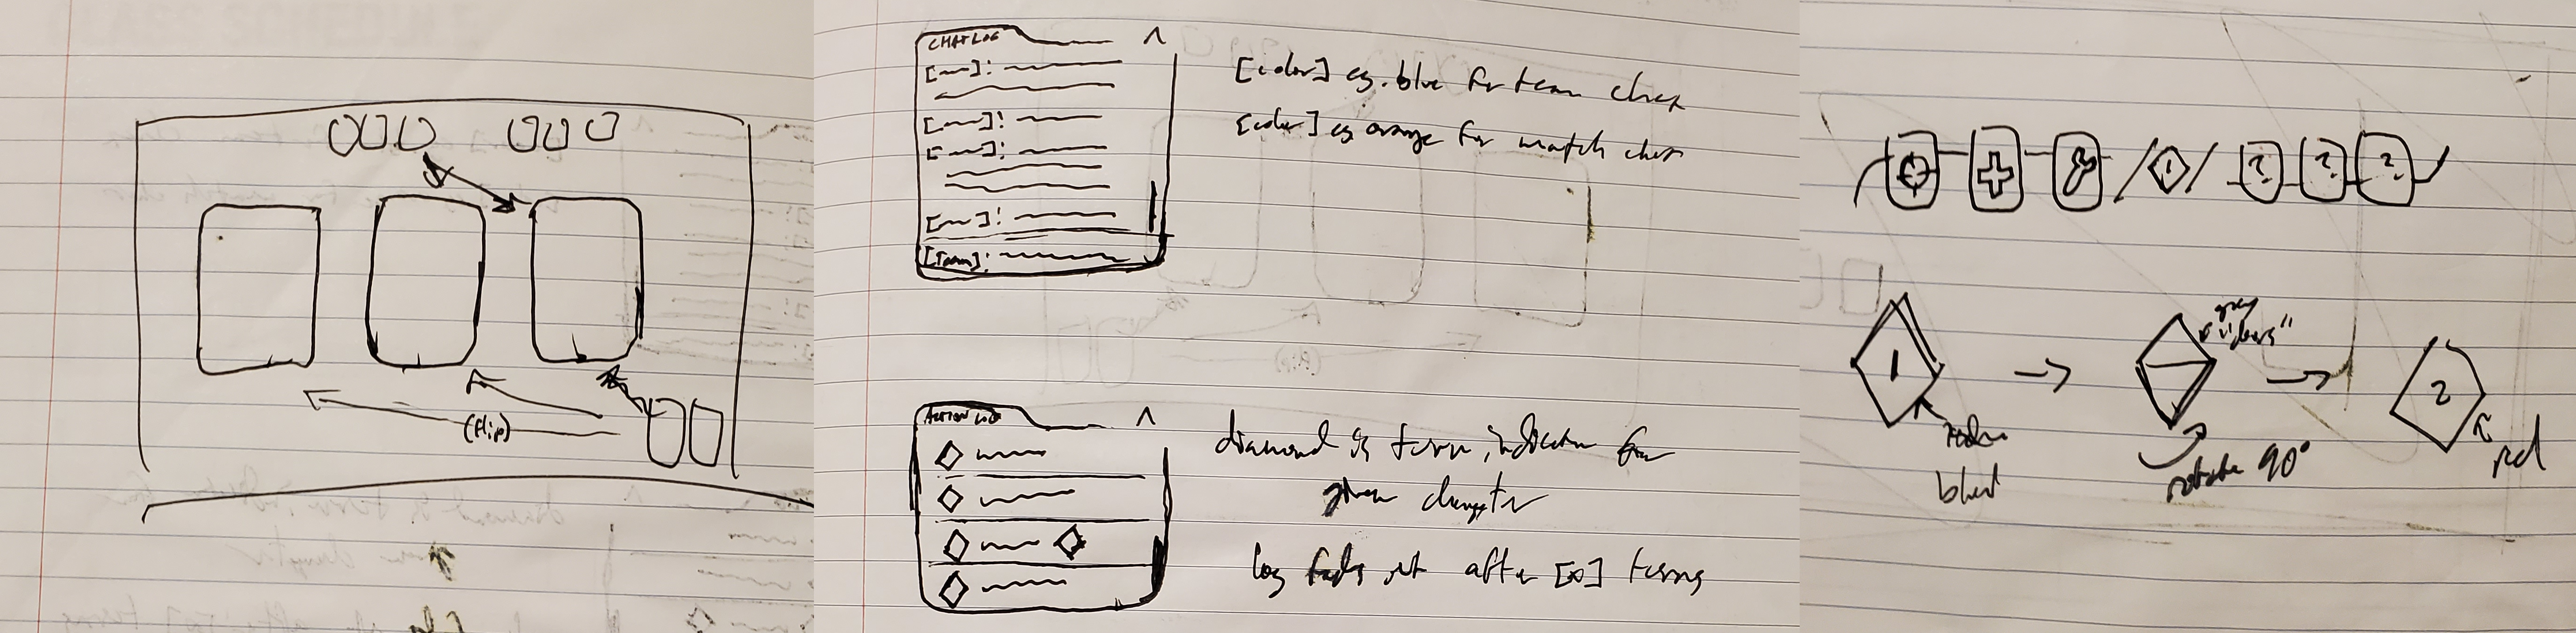 (flip)
CHATLOG
[color] eg. blue for team chat
[color] eg orange for match chat
[Team]:
ACTION LOG
diamond is turn indicator for
given character
log fades out after [x] turns
1
? ? ?
1
gray
"
→
2
rotate 90°
red